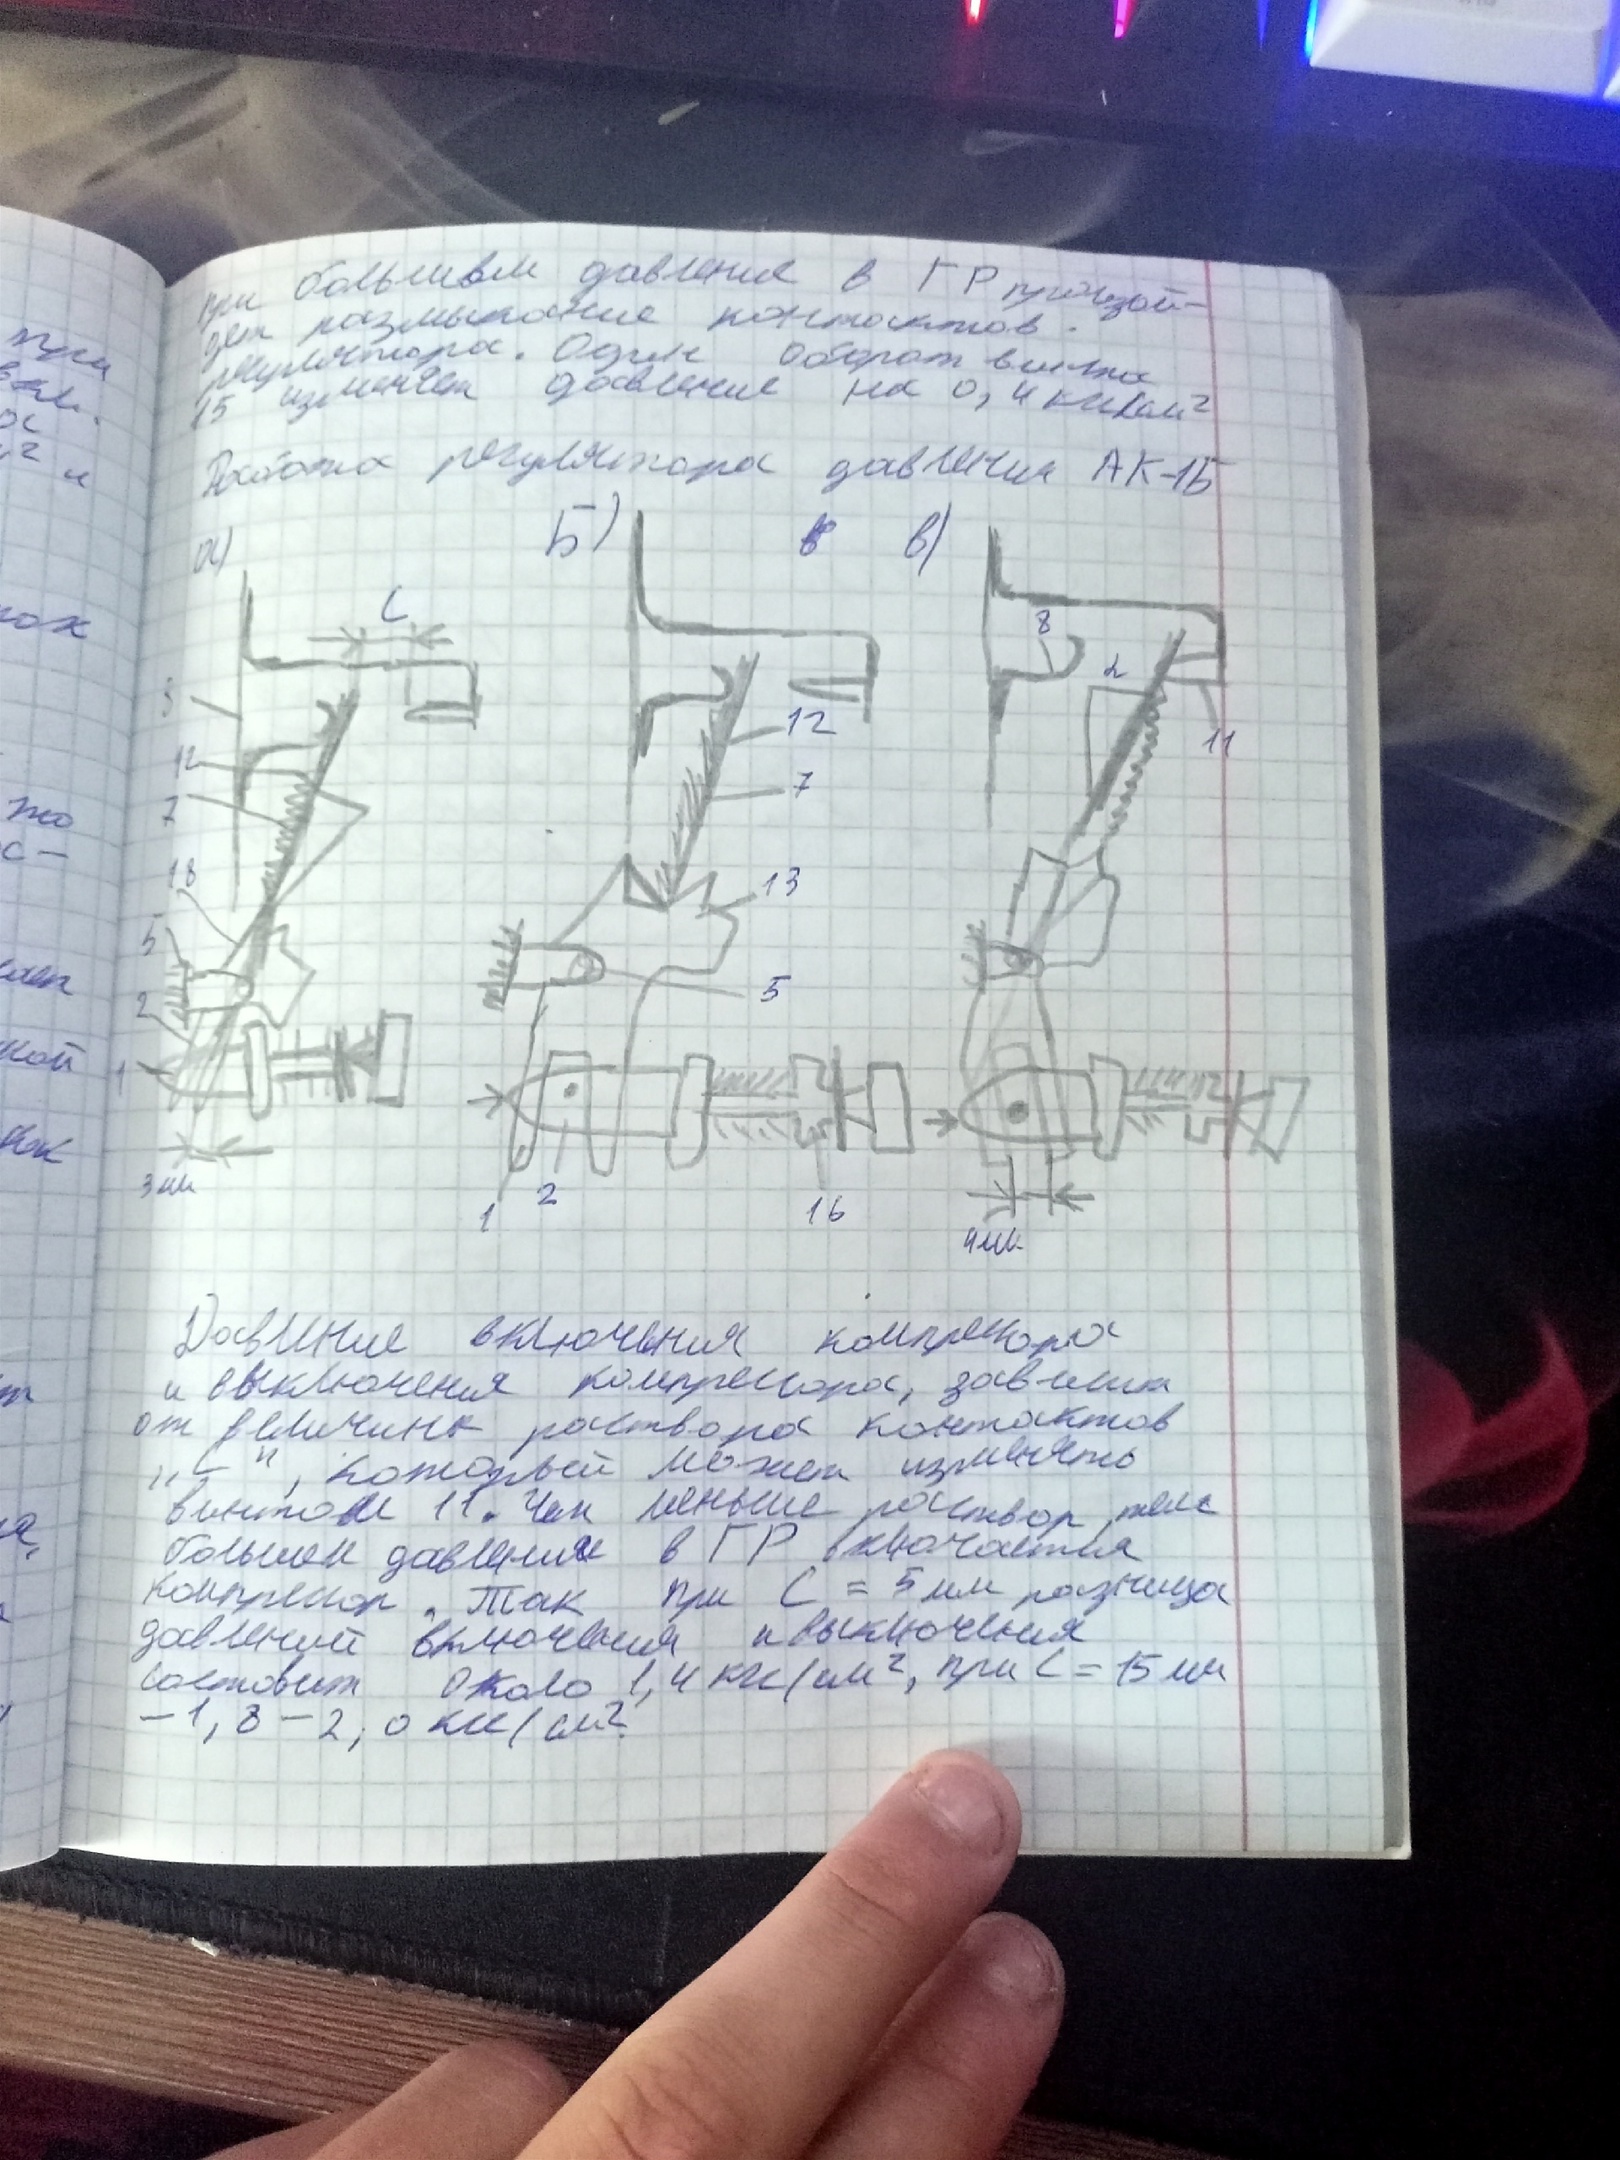 при
вкл.
ос
м² и
ток
то
с-
ной
ток
при большем давление в ГР произой-
дет размыкание контактов.
регулятора. Один оборот винта
15 изменяет давление на 0,4 кг/см²
Работа регулятора давления АК-1Б
а) Б) в в)
C
3
12
7
18
5
2
1
3 мм
12
7
13
5
1
2
16
8
L
11
4мм
Давление включения компресора
и выключения компресора, зависит
от величины раствора контактов
"C", который может изменять
винтом 11. Чем меньше раствор, тем
большем давлении в ГР включается
компресор. Так при C = 5 мм разница
давлений включения и выключения
составит около 1,4 кг/см², при C = 15 мм
- 1,8 - 2,0 кг/см².